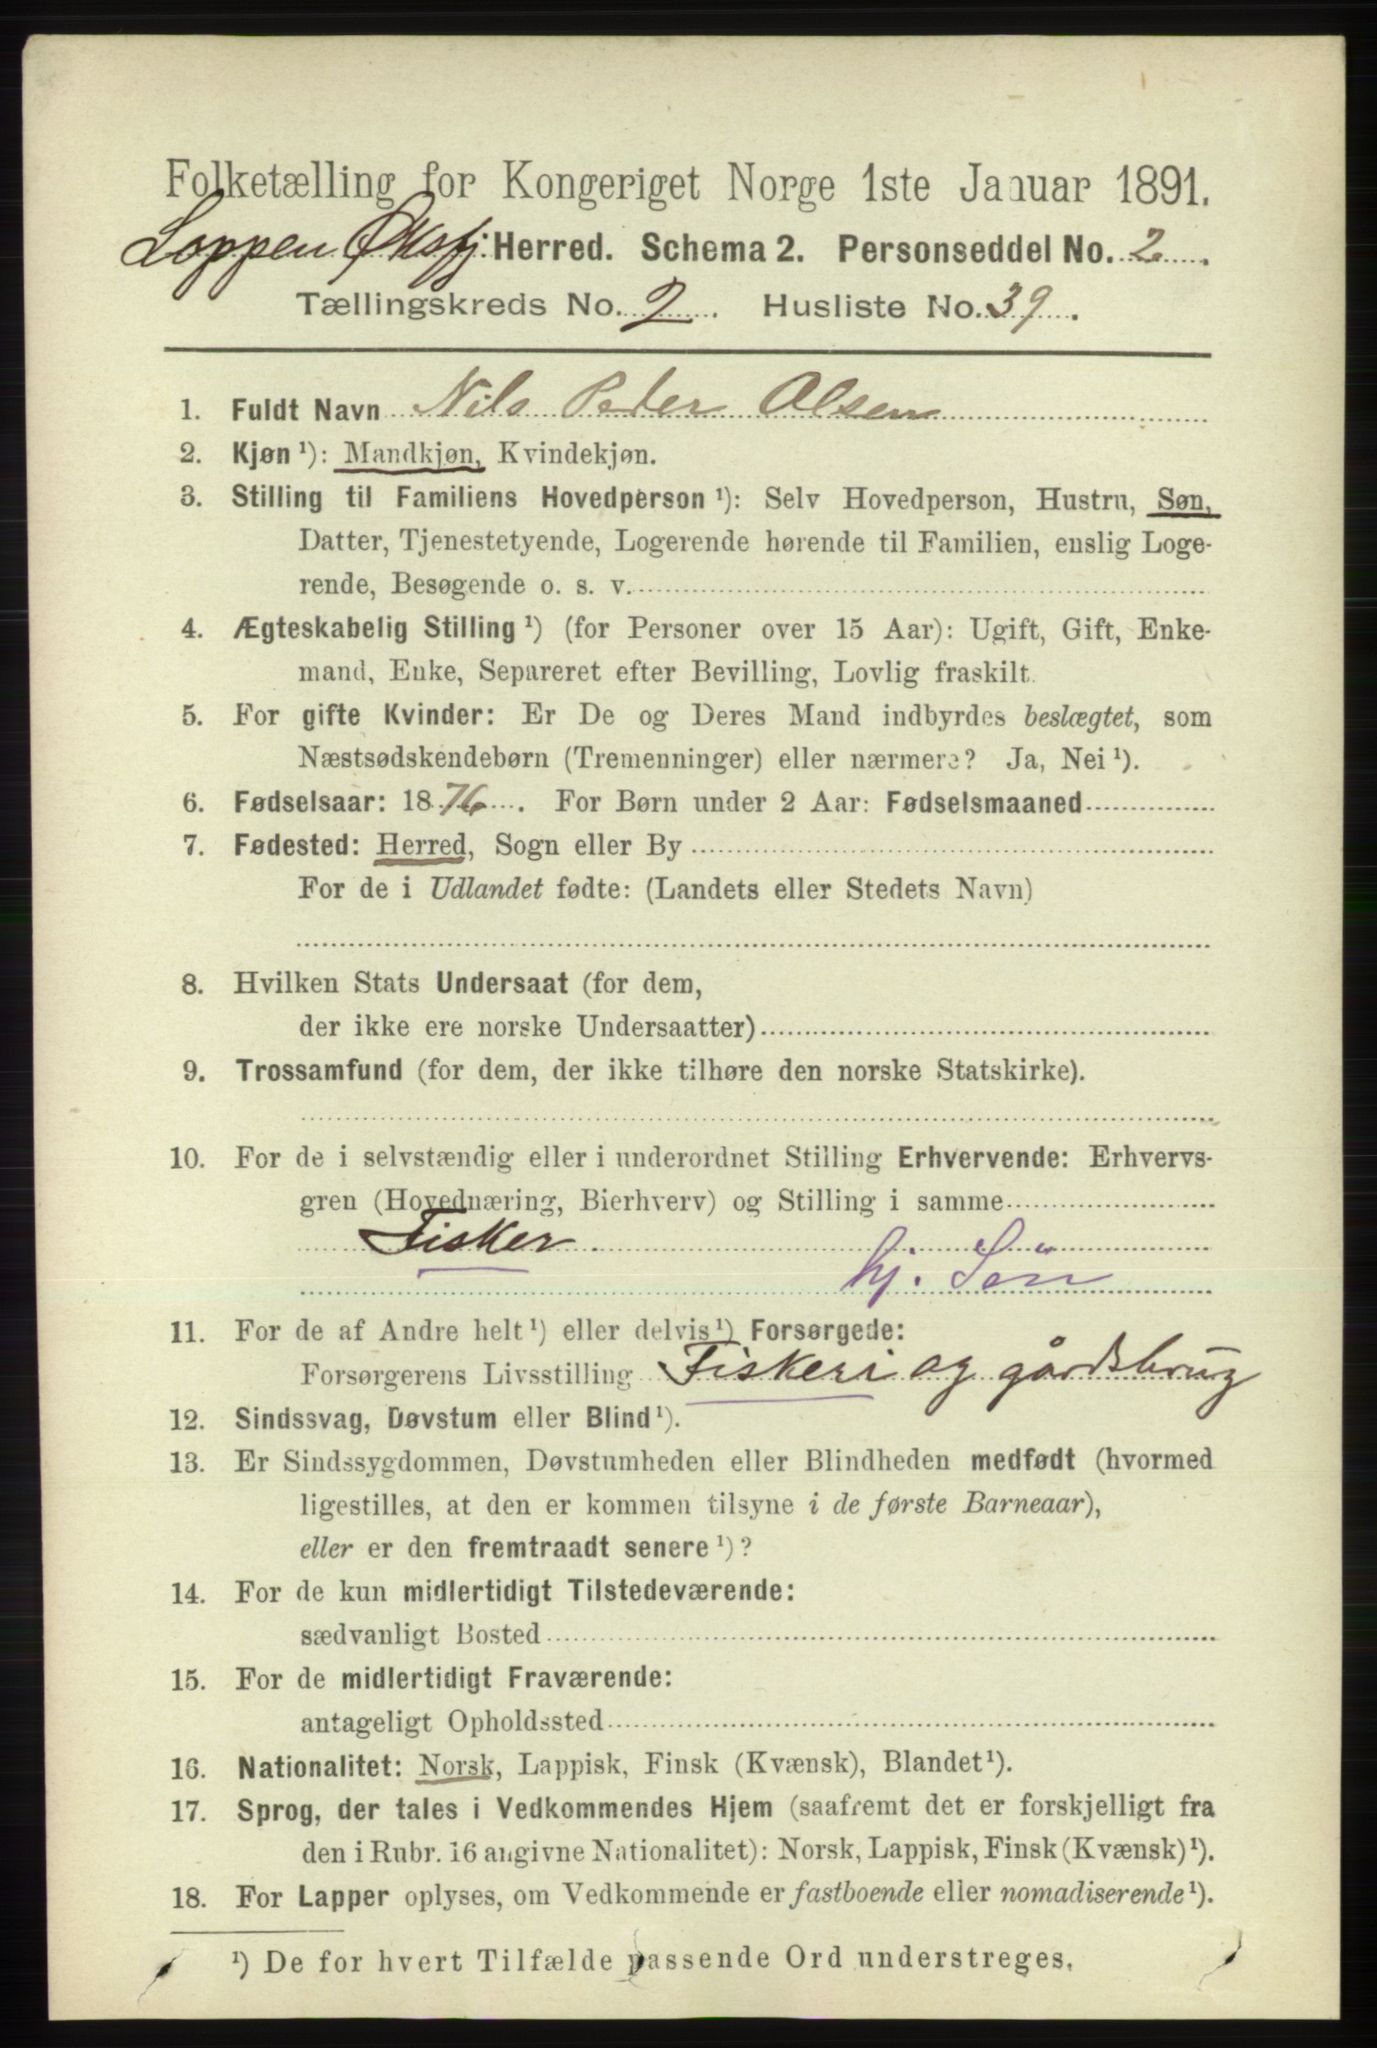 Folketælling for Kongeriget Norge 1ste Januar 1891.
Loppen Øksfj. Herred. Schema 2. Personseddel No. 2.
Tællingskreds No. 2. Husliste No. 39.
1. Fuldt Navn Nils Peder Olsen
2. Kjøn ¹): Mandkjøn, Kvindekjøn.
3. Stilling til Familiens Hovedperson ¹): Selv Hovedperson, Hustru, Søn,
Datter, Tjenestetyende, Logerende hørende til Familien, enslig Loge-
rende, Besøgende o. s. v.
4. Ægteskabelig Stilling ¹) (for Personer over 15 Aar): Ugift, Gift, Enke-
mand, Enke, Separeret efter Bevilling, Lovlig fraskilt.
5. For gifte Kvinder: Er De og Deres Mand indbyrdes beslægtet, som
Næstsødskendebørn (Tremenninger) eller nærmere? Ja, Nei ¹).
6. Fødselsaar: 1876. For Børn under 2 Aar: Fødselsmaaned
7. Fødested: Herred, Sogn eller By
For de i Udlandet fødte: (Landets eller Stedets Navn)
8. Hvilken Stats Undersaat (for dem,
der ikke ere norske Undersaatter)
9. Trossamfund (for dem, der ikke tilhøre den norske Statskirke).
10. For de i selvstændig eller i underordnet Stilling Erhvervende: Erhvervs-
gren (Hovednæring, Bierhverv) og Stilling i samme
Fisker.
hj. Søn
11. For de af Andre helt ¹) eller delvis ¹) Forsørgede:
Forsørgerens Livsstilling Fiskeri og gårdsbrug
12. Sindssvag, Døvstum eller Blind ¹).
13. Er Sindssygdommen, Døvstumheden eller Blindheden medfødt (hvormed
ligestilles, at den er kommen tilsyne i de første Barneaar),
eller er den fremtraadt senere ¹)?
14. For de kun midlertidigt Tilstedeværende:
sædvanligt Bosted
15. For de midlertidigt Fraværende:
antageligt Opholdssted
16. Nationalitet: Norsk, Lappisk, Finsk (Kvænsk), Blandet ¹).
17. Sprog, der tales i Vedkommendes Hjem (saafremt det er forskjelligt fra
den i Rubr. 16 angivne Nationalitet): Norsk, Lappisk, Finsk (Kvænsk) ¹).
18. For Lapper oplyses, om Vedkommende er fastboende eller nomadiserende ¹).
¹) De for hvert Tilfælde passende Ord understreges.